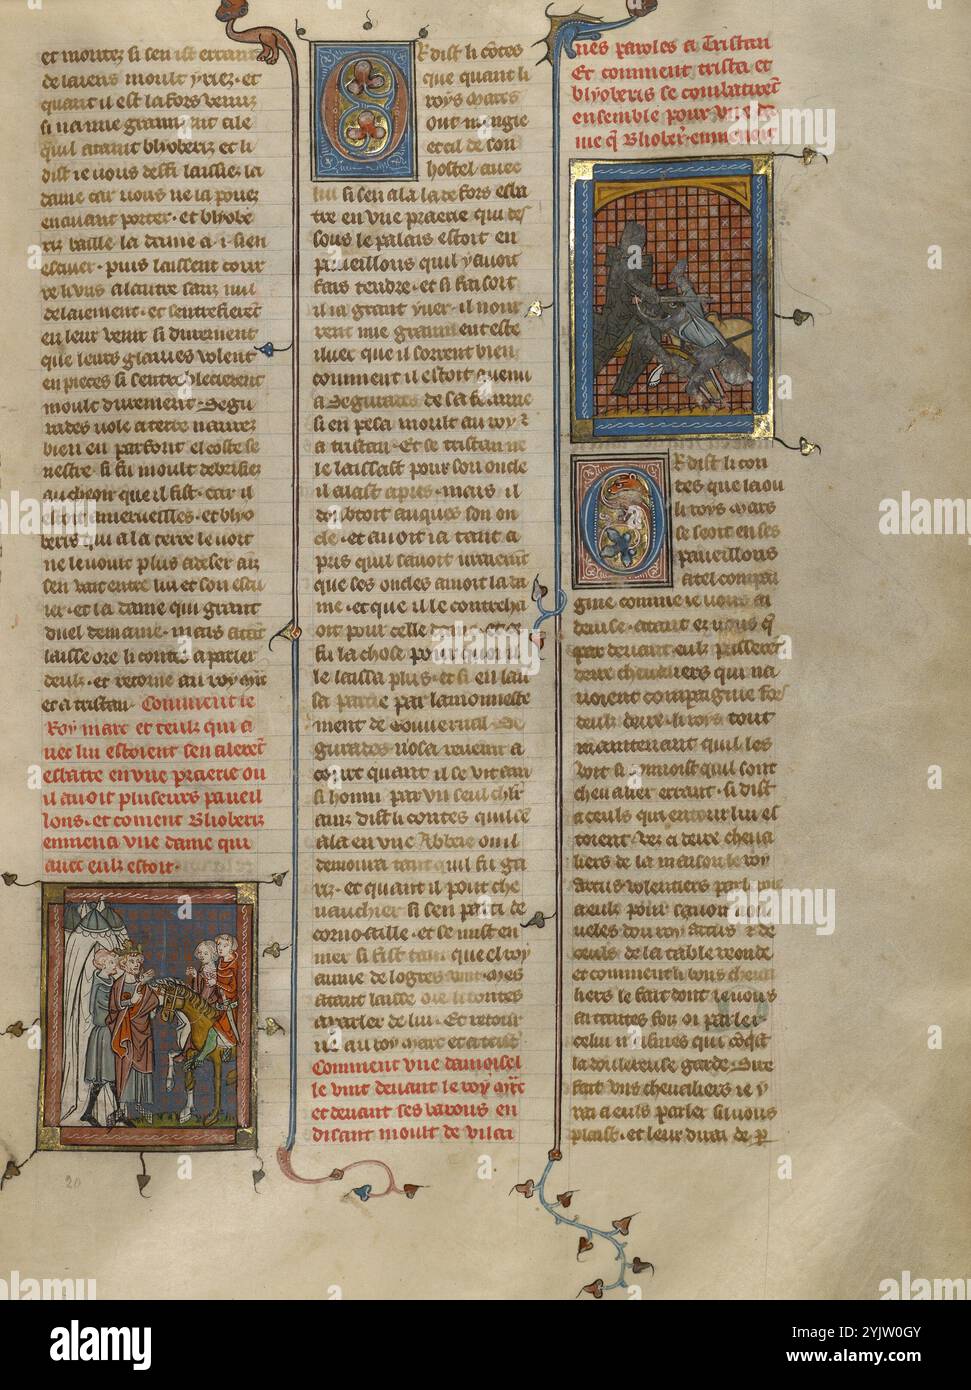 et montez si sen ist errant
de laiens moult yriez. et
quant il est la fors venuz
si na mie gramment ale
quil ataint blyoberiz et li
dist ie vous deffi laissie la
dame car vous ne la poez
en auant porter. et blyobe
riz baille la dame a .i. sien
escuier. puis laissent courr
re li vns a lautre sanz nul
delaiement. et sentrefierent
en leur venir si durement
que leurs glaiues volent
en pieces si sentreblecierent
moult durement. Segu
rades vole a terre naurez
bien en parfont el coste se
nestre. si fu moult debrisiez
au cheoir que il fist. car il
estoit a merueilles. et blyo
beris qui a la terre le voit
ne le vout plus adeser ainz
sen vait entre lui et son escu
ier. et la dame qui grant
duel demaine. mais atant
laisse ore li contes a parler
deulz. et retorne au roy marc
et a tristan. Comment le
Roy marc et ceulz qui a
uec lui estoient sen alerent
esbatre en vne praerie ou
il auoit pluseurs paueil
lons. et coment Blioberiz
enmena vne dame qui
auec eulz estoit.
20
Or dist li contes
que quant li
roys Marcs
out mengie
et cil de son
hostel auec
lui si sen ala la defors esba
tre en vne praerie qui des
sous le palais estoit en
paueillons quil y auoit
fais tendre. et si faisoit
il ia grant yuer. il nour
rent mie gramment este
iluec que il sorent bien
comment il estoit auenu
a Segurades de sa femme
si en pesa moult au roy et
a tristan. Et se tristan ne
le laissast pour son oncle
il alast apres. mais il
doubtoit auques son on
cle. et auoit ia tant a
pris quil sauoit vraiement
que ses oncles amoit la da
me. et que il le contreha
oit pour celle dame. et ce
fu la chose pour quoi il
le laissa plus. et si en lais
sa partie par lamonneste
ment de Gouuernal. Se
gurades nosa reuenir a
court quant il se vit ain
si honni par vn seul cheualier
ainz dist li contes quil sen
ala en vne Abbaie ou il
demoura tant quil fu ga
riz. et quant il pout che
uauchier si sen parti de
cornoaille. et se mist en
mer si fist tant que el roy
aume de logres vint. Mes
atant laisse ore li contes
a parler de lui. Et retour
ne au roy marc et a tristan
Comment vne damoisel
le vint deuant le roy marc
et deuant ses barons en
disant moult de vilai
nes paroles a Tristan
Et comment tristan et
blyoberis se combatirent
ensemble pour vne da
me que Blioberis enmenoit
Or dist li con
tes que la ou
li roys Marcs
se seoit en ses
paueillons
a tel compai
gnie comme ie vous ai
deuise. atant ez vous que
par deuant eulz passerent
deux cheualiers qui na
uoient compaignie fors
deulz deux. li roys tout
maintenant quil les
voit si connoist quil sont
cheualier errant. si dist
a ceulz qui entour lui es
toient. vez a deux cheua
liers de la maison le roy
Artus volentiers parleroie
a eulz pour sauoir nou
ueles dou roy artus et de
ceulz de la table reonde
et comment li bons cheua
liers le fait dont ie vous
ai toutes fois oi parler
celui meismes qui conquist
la doulereuse garde. Sire
fait vns cheualiers ie y
irai a eulz parler si vous
plaist. et leur dirai de par
alamy
alamy
Image ID: 2YJW0GY
www.alamy.com